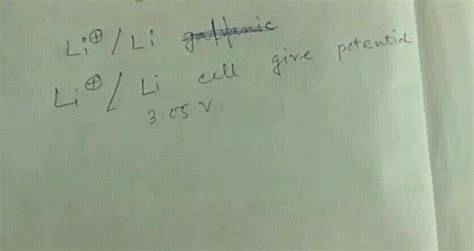 Li⊕/Li galvanic
Li⊕/Li cell give potential
3.05 V